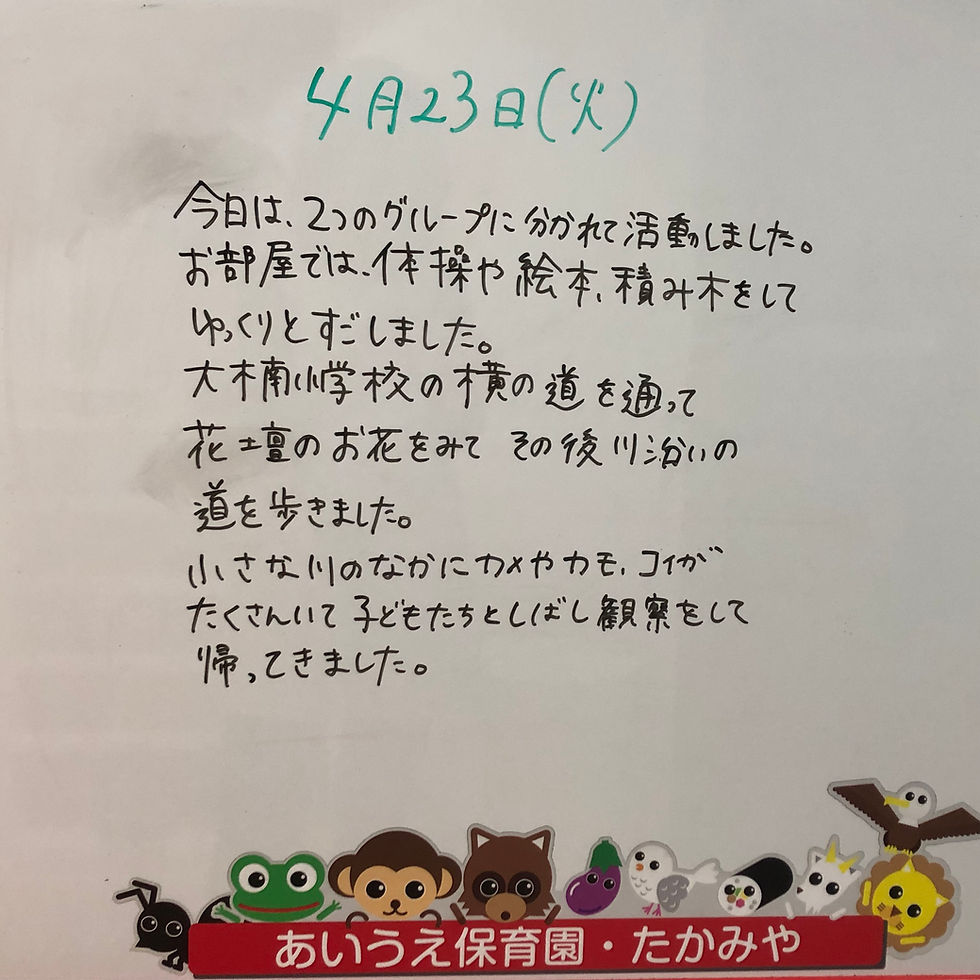 4月23日(火)
今日は、2つのグループに分かれて活動しました。
お部屋では、体操や絵本、積み木をして
ゆっくりとすごしました。
大木南小学校の横の道を通って
花壇のお花をみて その後川沿いの
道を歩きました。
小さな川のなかにカメやカモ、コイが
たくさんいて子どもたちとしばし観察をして
帰ってきました。
あいうえ保育園・たかみや